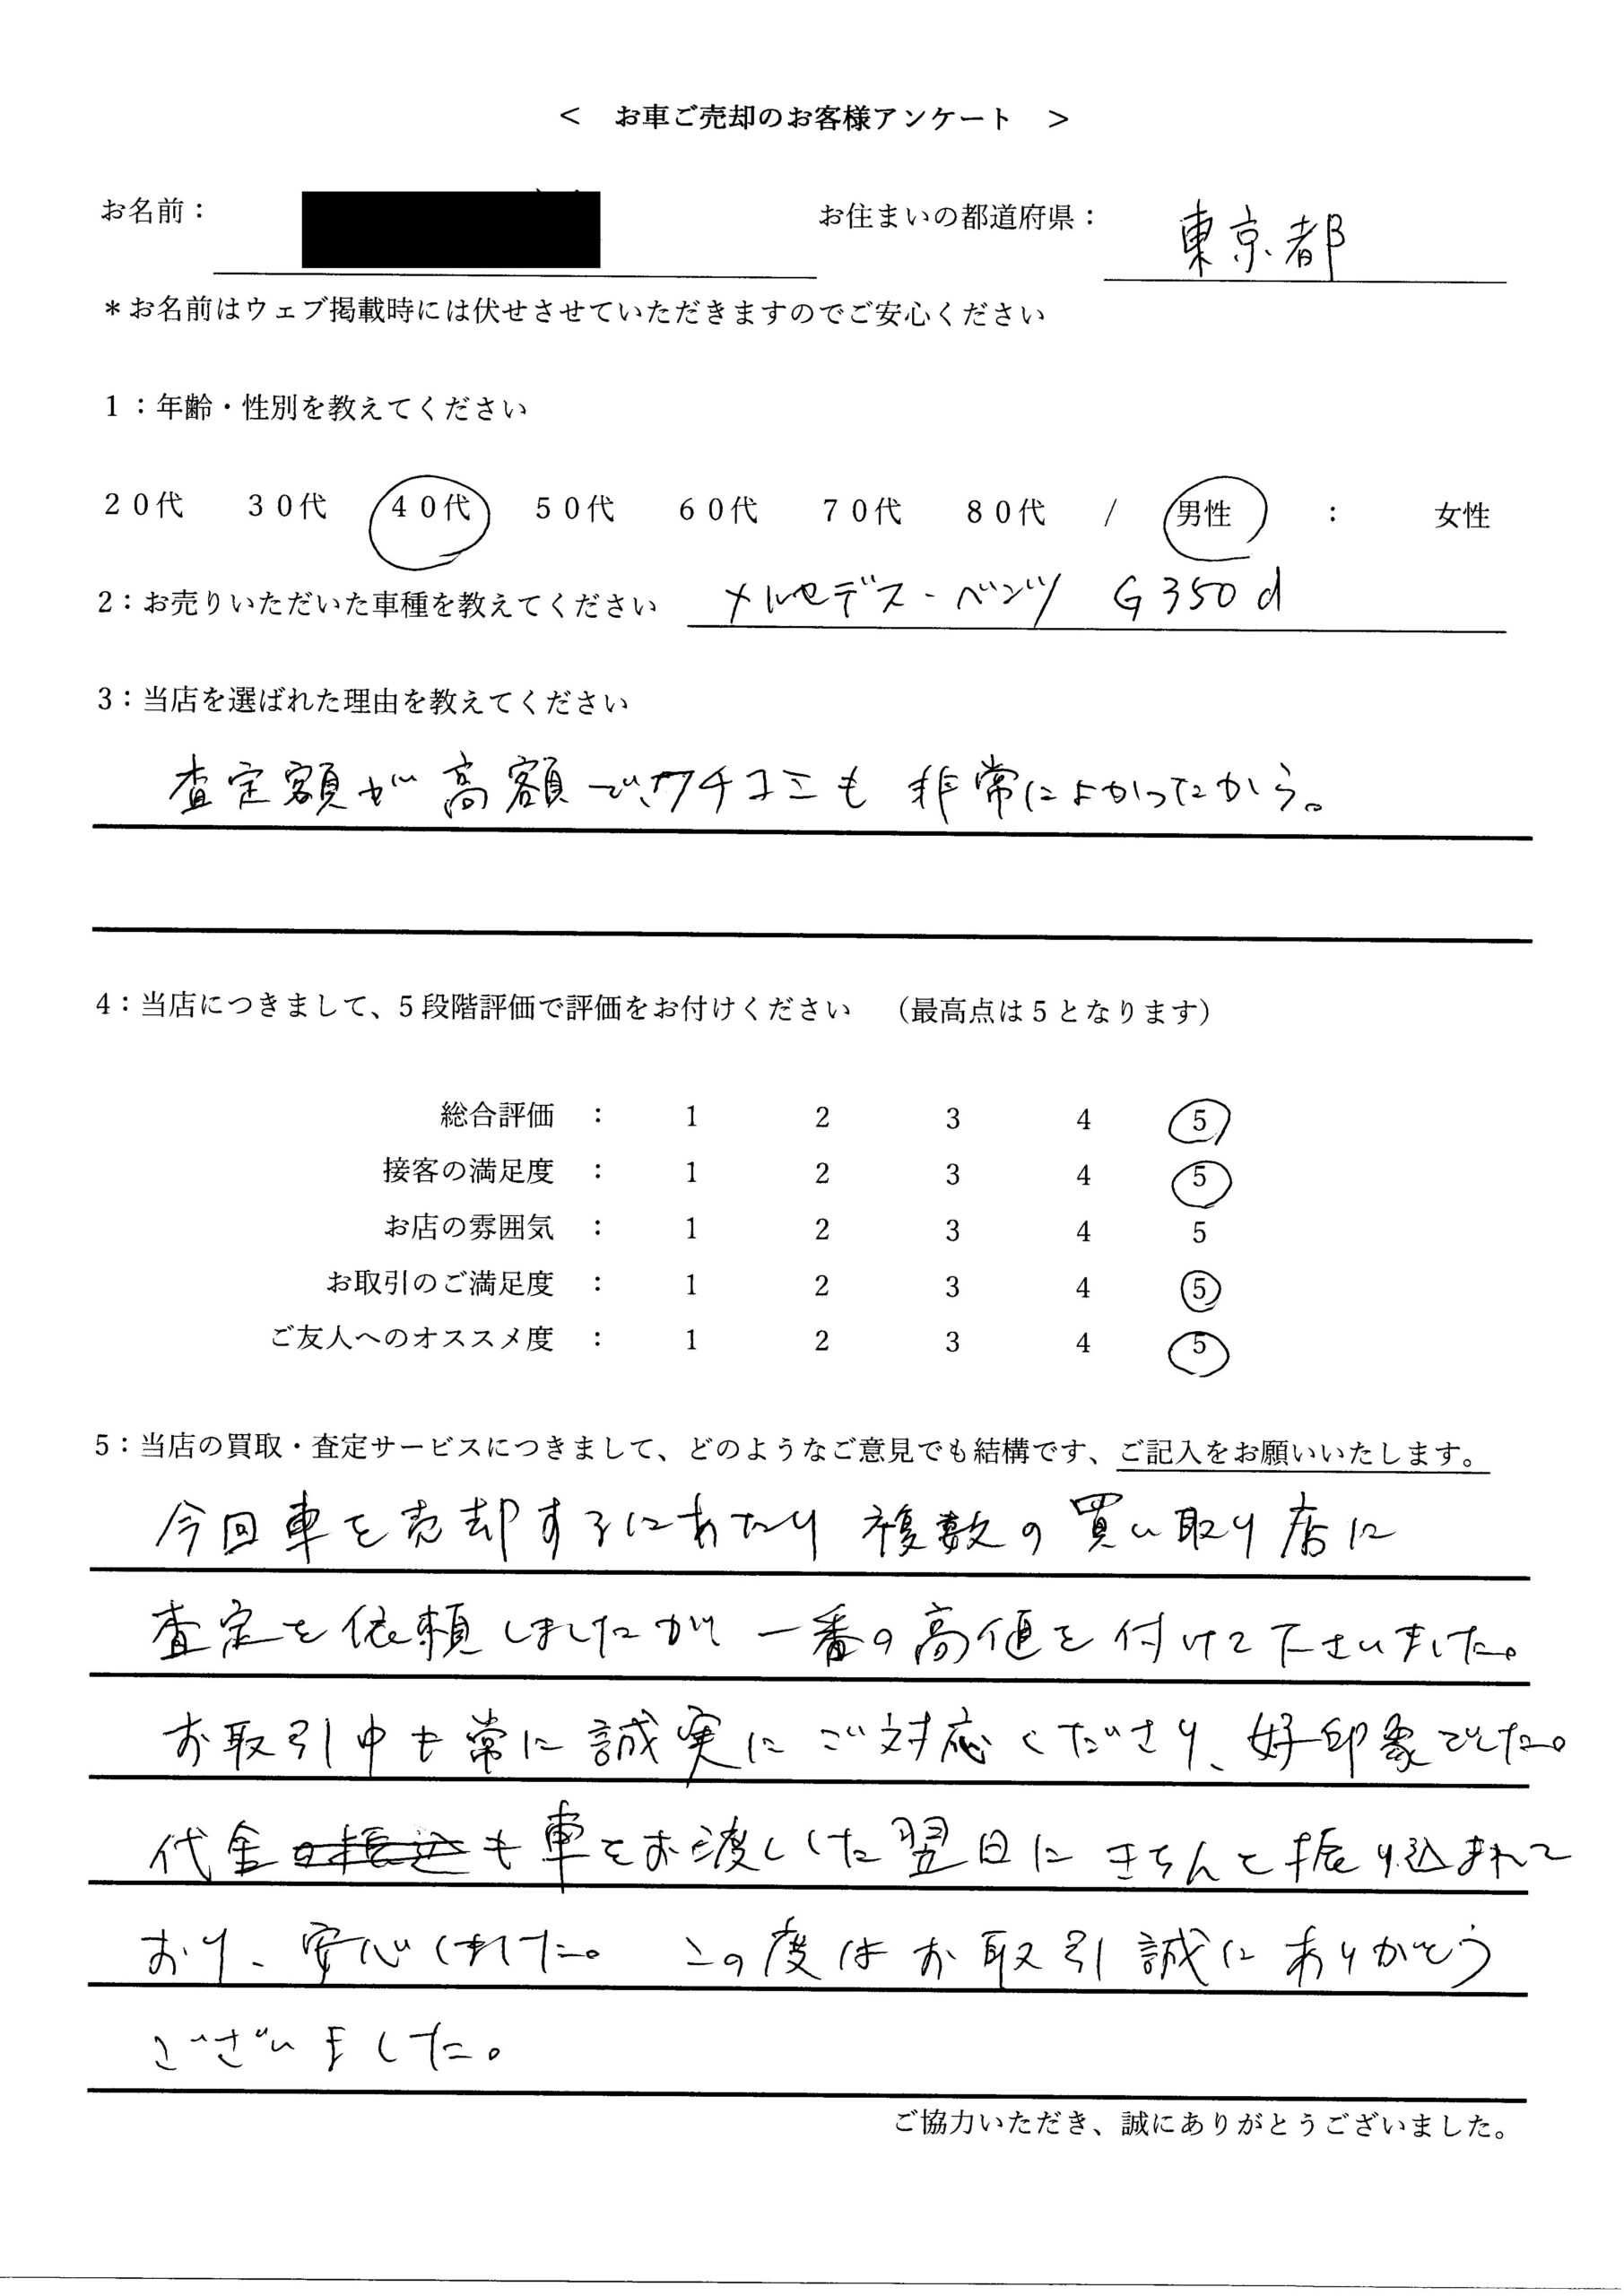 ＜　お車ご売却のお客様アンケート　＞
お名前：　お住まいの都道府県：　東京都
＊お名前はウェブ掲載時には伏せさせていただきますのでご安心ください
1：年齢・性別を教えてください
２０代　３０代　４０代　５０代　６０代　７０代　８０代　/　男性　：　女性
2：お売りいただいた車種を教えてください　メルセデス-ベンツ　G350d
3：当店を選ばれた理由を教えてください
査定額が高額で、クチコミも非常によかったから。
4：当店につきまして、5段階評価で評価をお付けください　（最高点は5となります）
総合評価　：　1　2　3　4　5
接客の満足度　：　1　2　3　4　5
お店の雰囲気　：　1　2　3　4　5
お取引のご満足度　：　1　2　3　4　5
ご友人へのオススメ度　：　1　2　3　4　5
5：当店の買取・査定サービスにつきまして、どのようなご意見でも結構です、ご記入をお願いいたします。
今回車を売却するにあたり複数の買い取り店に
査定を依頼しましたが一番の高値を付けて下さいました。
お取引中も常に誠実にご対応くださり、好印象でした。
代金も車をお渡しした翌日にきちんと振り込まれて
おり、安心しました。　この度はお取引誠にありがとう
ございました。
ご協力いただき、誠にありがとうございました。